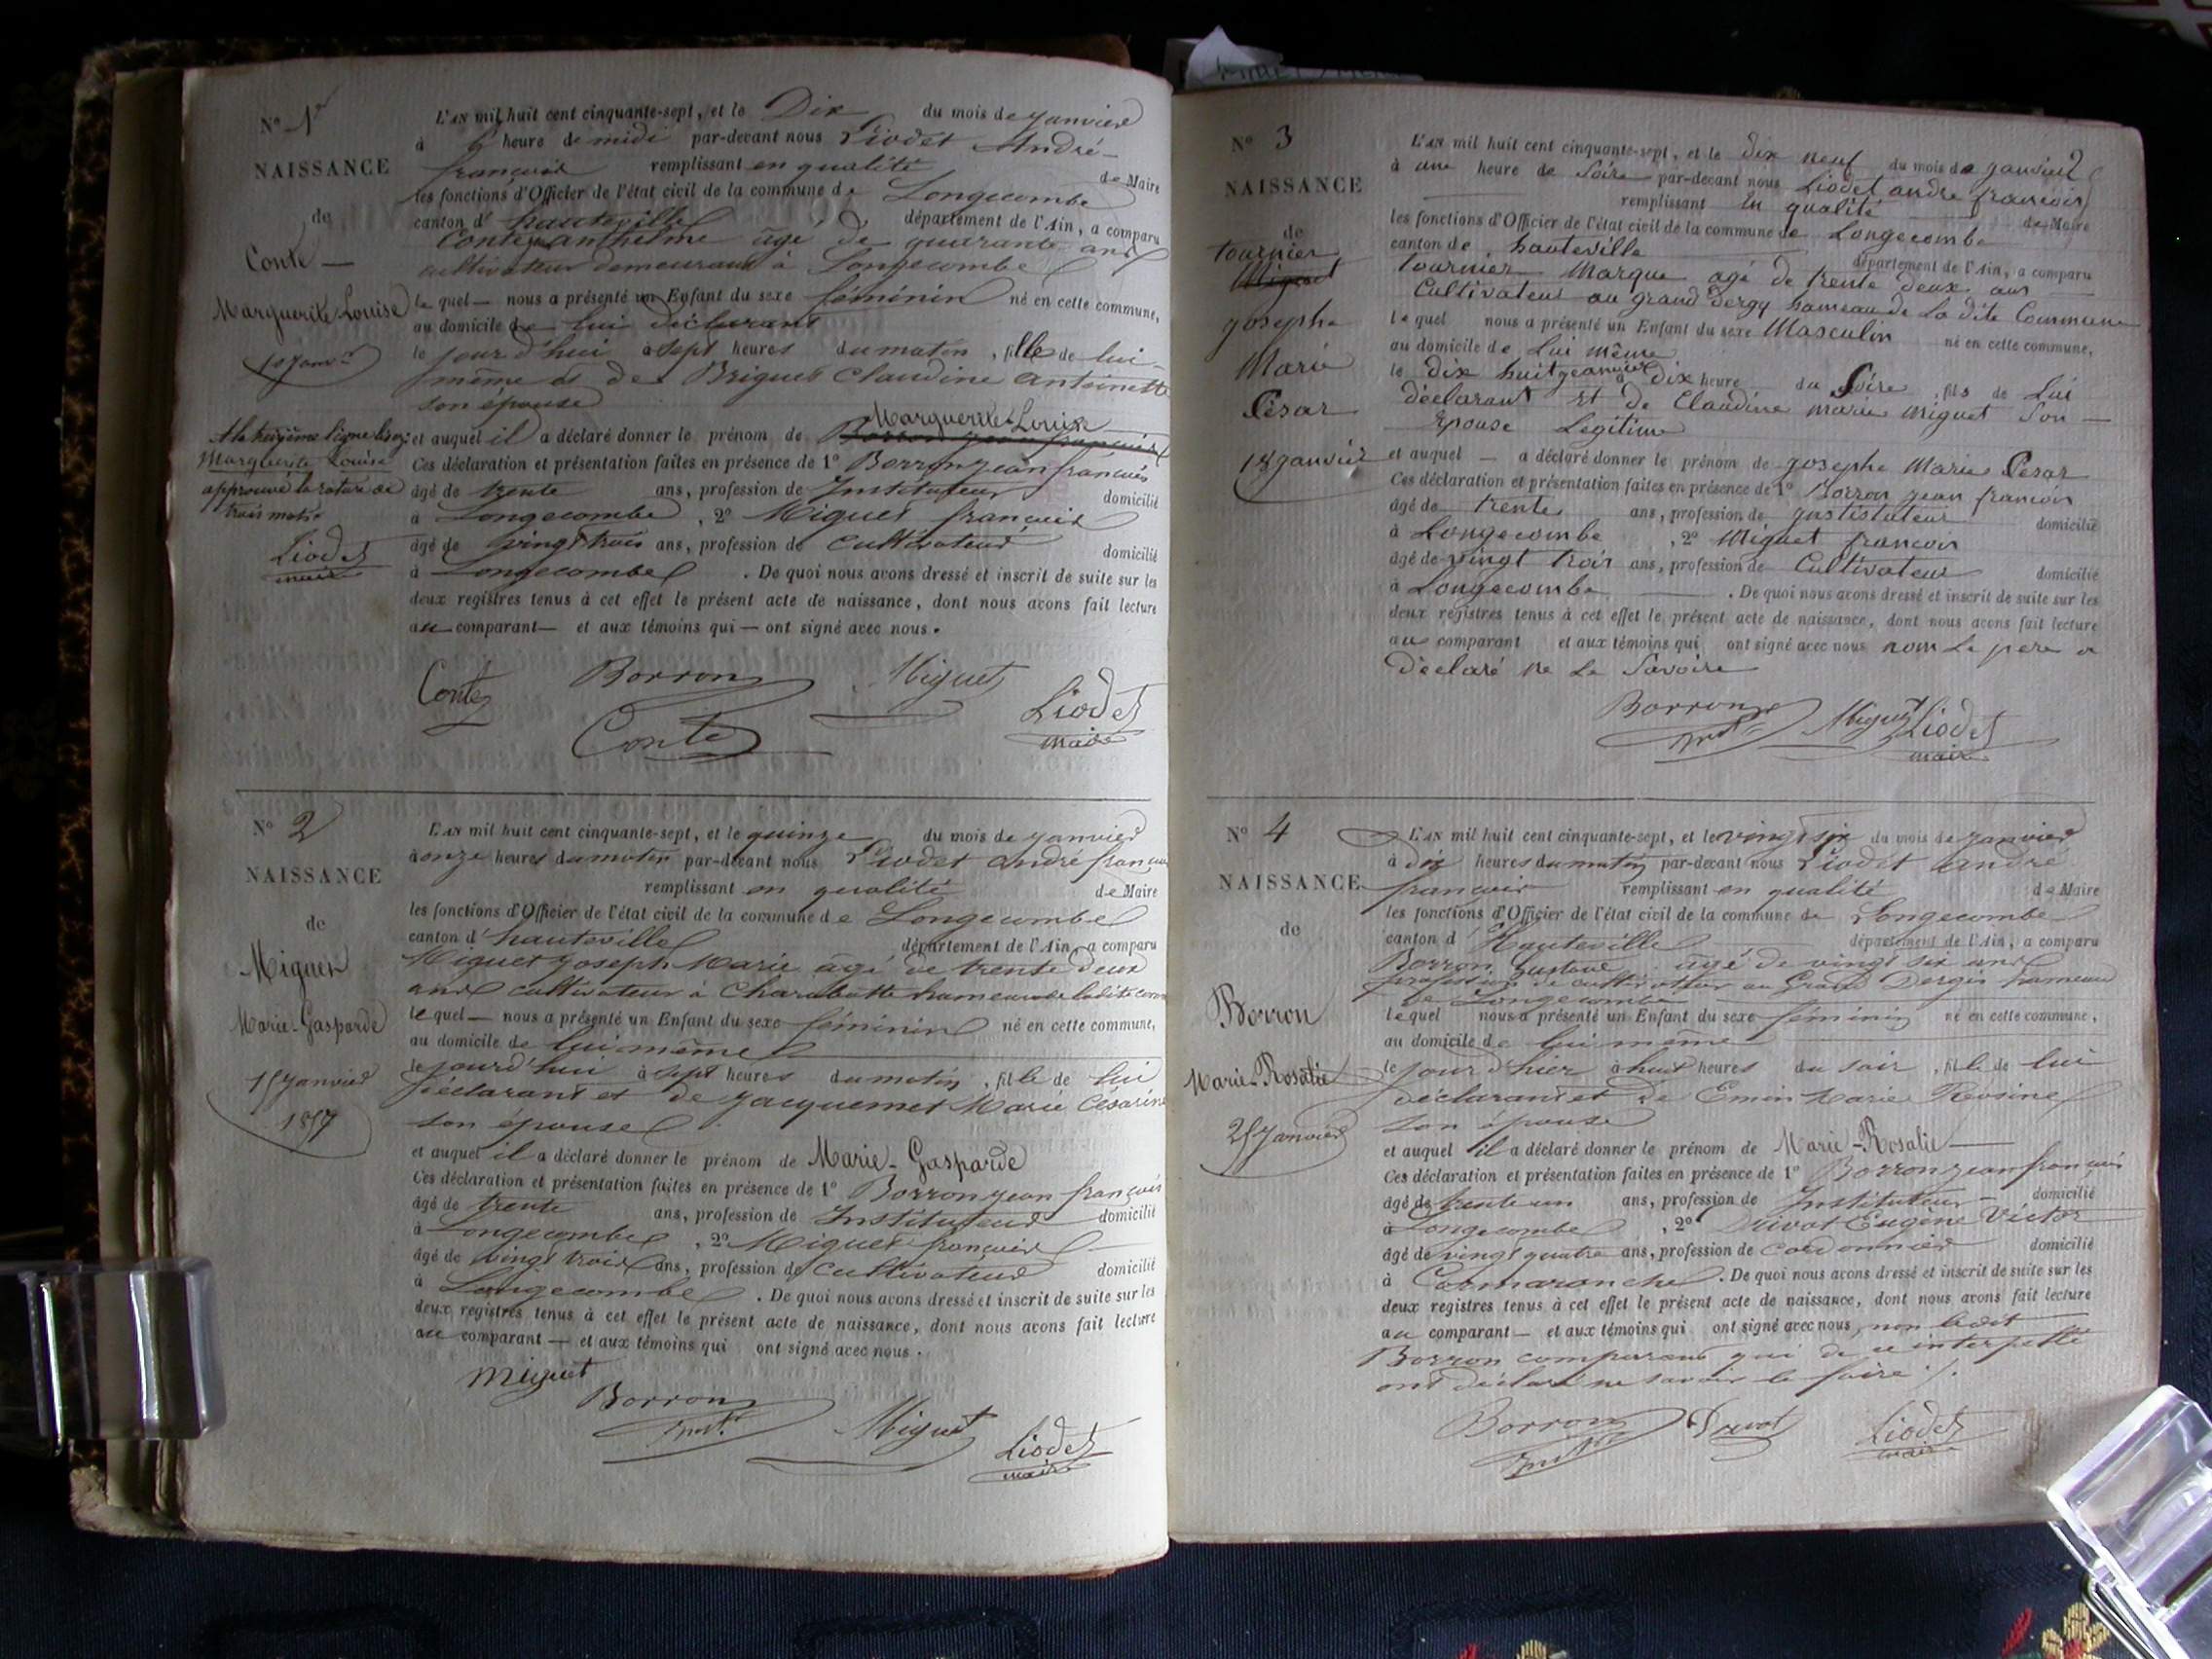 N° 1er
NAISSANCE
de
Conte —
Marguerite Louise
10 Janv.er
A la treizième ligne lisez
Marguerite Louise
approuvé la rature de
trois mots
Liodet
maire
L'AN mil huit cent cinquante-sept, et le Dix du mois de Janvier
à heure de midi par-devant nous Liodet André-
françois remplissant en qualité de Maire
les fonctions d'Officier de l'état civil de la commune de Longecombe
canton d' hauteville département de l'Ain, a comparu
Conte anthelme âgé de quarante ans
cultivateur demeurant à Longecombe
le quel — nous a présenté un Enfant du sexe féminin né en cette commune,
au domicile de lui déclarant
le jour d'hui à sept heures du matin, fille de lui-
même et de Briguet Claudine Antoinette
son épouse
Marguerite-Louise
et auquel il a déclaré donner le prénom de
Ces déclaration et présentation faites en présence de 1° Borron jean françois
âgé de trente ans, profession de Instituteur domicilié
à Longecombe, 2° Miguet françois
âgé de vingt trois ans, profession de Cultivateur domicilié
à Longecombe. De quoi nous avons dressé et inscrit de suite sur les
deux registres tenus à cet effet le présent acte de naissance, dont nous avons fait lecture
au comparant — et aux témoins qui — ont signé avec nous.
Conte Borron Miguet Liodet
Conte maire
N° 2
NAISSANCE
de
Miguet
Marie-Gasparde
15 Janvier
1857
L'AN mil huit cent cinquante-sept, et le quinze du mois de Janvier
à onze heures du matin par-devant nous Liodet André françois
remplissant en qualité de Maire
les fonctions d'Officier de l'état civil de la commune de Longecombe
canton d' hauteville département de l'Ain, a comparu
Miguet Joseph Marie âgé de trente deux
ans cultivateur à Charabotte hameau de ladite
le quel — nous a présenté un Enfant du sexe féminin né en cette commune,
au domicile de lui même
le jourd'hui à sept heures du matin, fille de lui
déclarant et de Jacquemet Marie Césarine
son épouse
et auquel il a déclaré donner le prénom de Marie-Gasparde
Ces déclaration et présentation faites en présence de 1° Borron jean françois
âgé de trente ans, profession de Instituteur domicilié
à Longecombe, 2° Miguet françois
âgé de vingt trois ans, profession de Cultivateur domicilié
à Longecombe. De quoi nous avons dressé et inscrit de suite sur les
deux registres tenus à cet effet le présent acte de naissance, dont nous avons fait lecture
au comparant — et aux témoins qui ont signé avec nous.
miguet
Borron
inst.r Miguet Liodet
maire
N° 3
NAISSANCE
de
tournier
Miguet
Josephe
Marie
Cesar
18 janvier
L'AN mil huit cent cinquante-sept, et le dix neuf du mois de janvier
à une heure de Soire par-devant nous Liodet andre francois
remplissant En qualité de Maire
les fonctions d'Officier de l'état civil de la commune de Longecombe
canton de hauteville département de l'Ain, a comparu
tournier Marque agé de trente deux ans —
Cultivateur au grand dergy hameau de La dite Commune
le quel nous a présenté un Enfant du sexe Masculin né en cette commune,
au domicile de Lui même
le dix huit geanvier à dix heure du Soire, fils de Lui
déclarant Et de Claudine Marie Miguet Son —
Epouse Legitime
et auquel — a déclaré donner le prénom de josephe Marie Cesar
Ces déclaration et présentation faites en présence de 1° Borron jean francois
âgé de trente ans, profession de justituteur domicilié
à Longecombe, 2° Miguet francois
âgé de vingt trois ans, profession de Cultivateur domicilié
à Longecombe. De quoi nous avons dressé et inscrit de suite sur les
deux registres tenus à cet effet le présent acte de naissance, dont nous avons fait lecture
au comparant et aux témoins qui ont signé avec nous nom Le pere a
déclaré ne Le Savoire
Borron Miguet Liodet
inst.r maire
N° 4
NAISSANCE
de
Borron
Marie-Rosalie
25 Janvier
L'AN mil huit cent cinquante-sept, et le vingt six du mois de Janvier
à dix heures du matin par-devant nous Liodet André
françois remplissant en qualité de Maire
les fonctions d'Officier de l'état civil de la commune de Longecombe
canton d' Hauteville département de l'Ain, a comparu
Borron Gustave âgé de vingt six ans
profession de cultivateur au Grand Dergis hameau
de Longecombe
le quel nous a présenté un Enfant du sexe féminin né en cette commune,
au domicile de lui même
le jour d'hier à huit heures du soir, fille de lui
déclarant et de Emin Marie Rosine
son épouse
et auquel il a déclaré donner le prénom de Marie-Rosalie —
Ces déclaration et présentation faites en présence de 1° Borron jean françois
âgé de trente un ans, profession de Instituteur domicilié
à Longecombe, 2° Eugène Victor
âgé de vingt quatre ans, profession de cordonnier domicilié
à Cormaranche. De quoi nous avons dressé et inscrit de suite sur les
deux registres tenus à cet effet le présent acte de naissance, dont nous avons fait lecture
au comparant — et aux témoins qui ont signé avec nous, non ledit
Borron comparant qui de ce interpellé
ont déclaré ne savoir le faire /.
Borron Liodet
inst.r maire